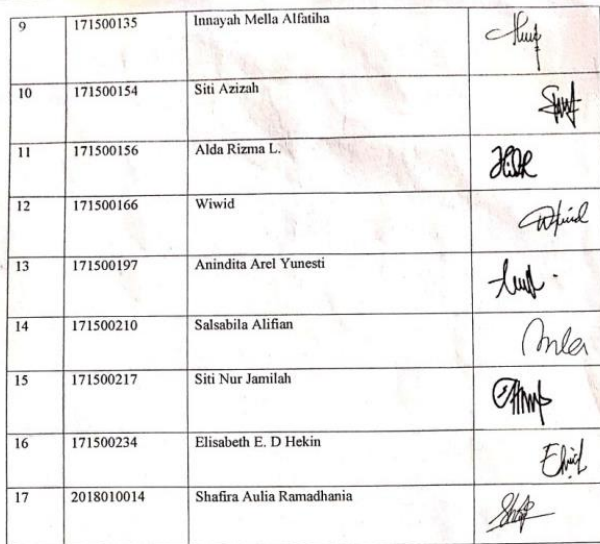 9 171500135 Innayah Mella Alfatiha
10 171500154 Siti Azizah
11 171500156 Alda Rizma L.
12 171500166 Wiwid
13 171500197 Anindita Arel Yunesti
14 171500210 Salsabila Alifian
15 171500217 Siti Nur Jamilah
16 171500234 Elisabeth E. D Hekin
17 2018010014 Shafira Aulia Ramadhania